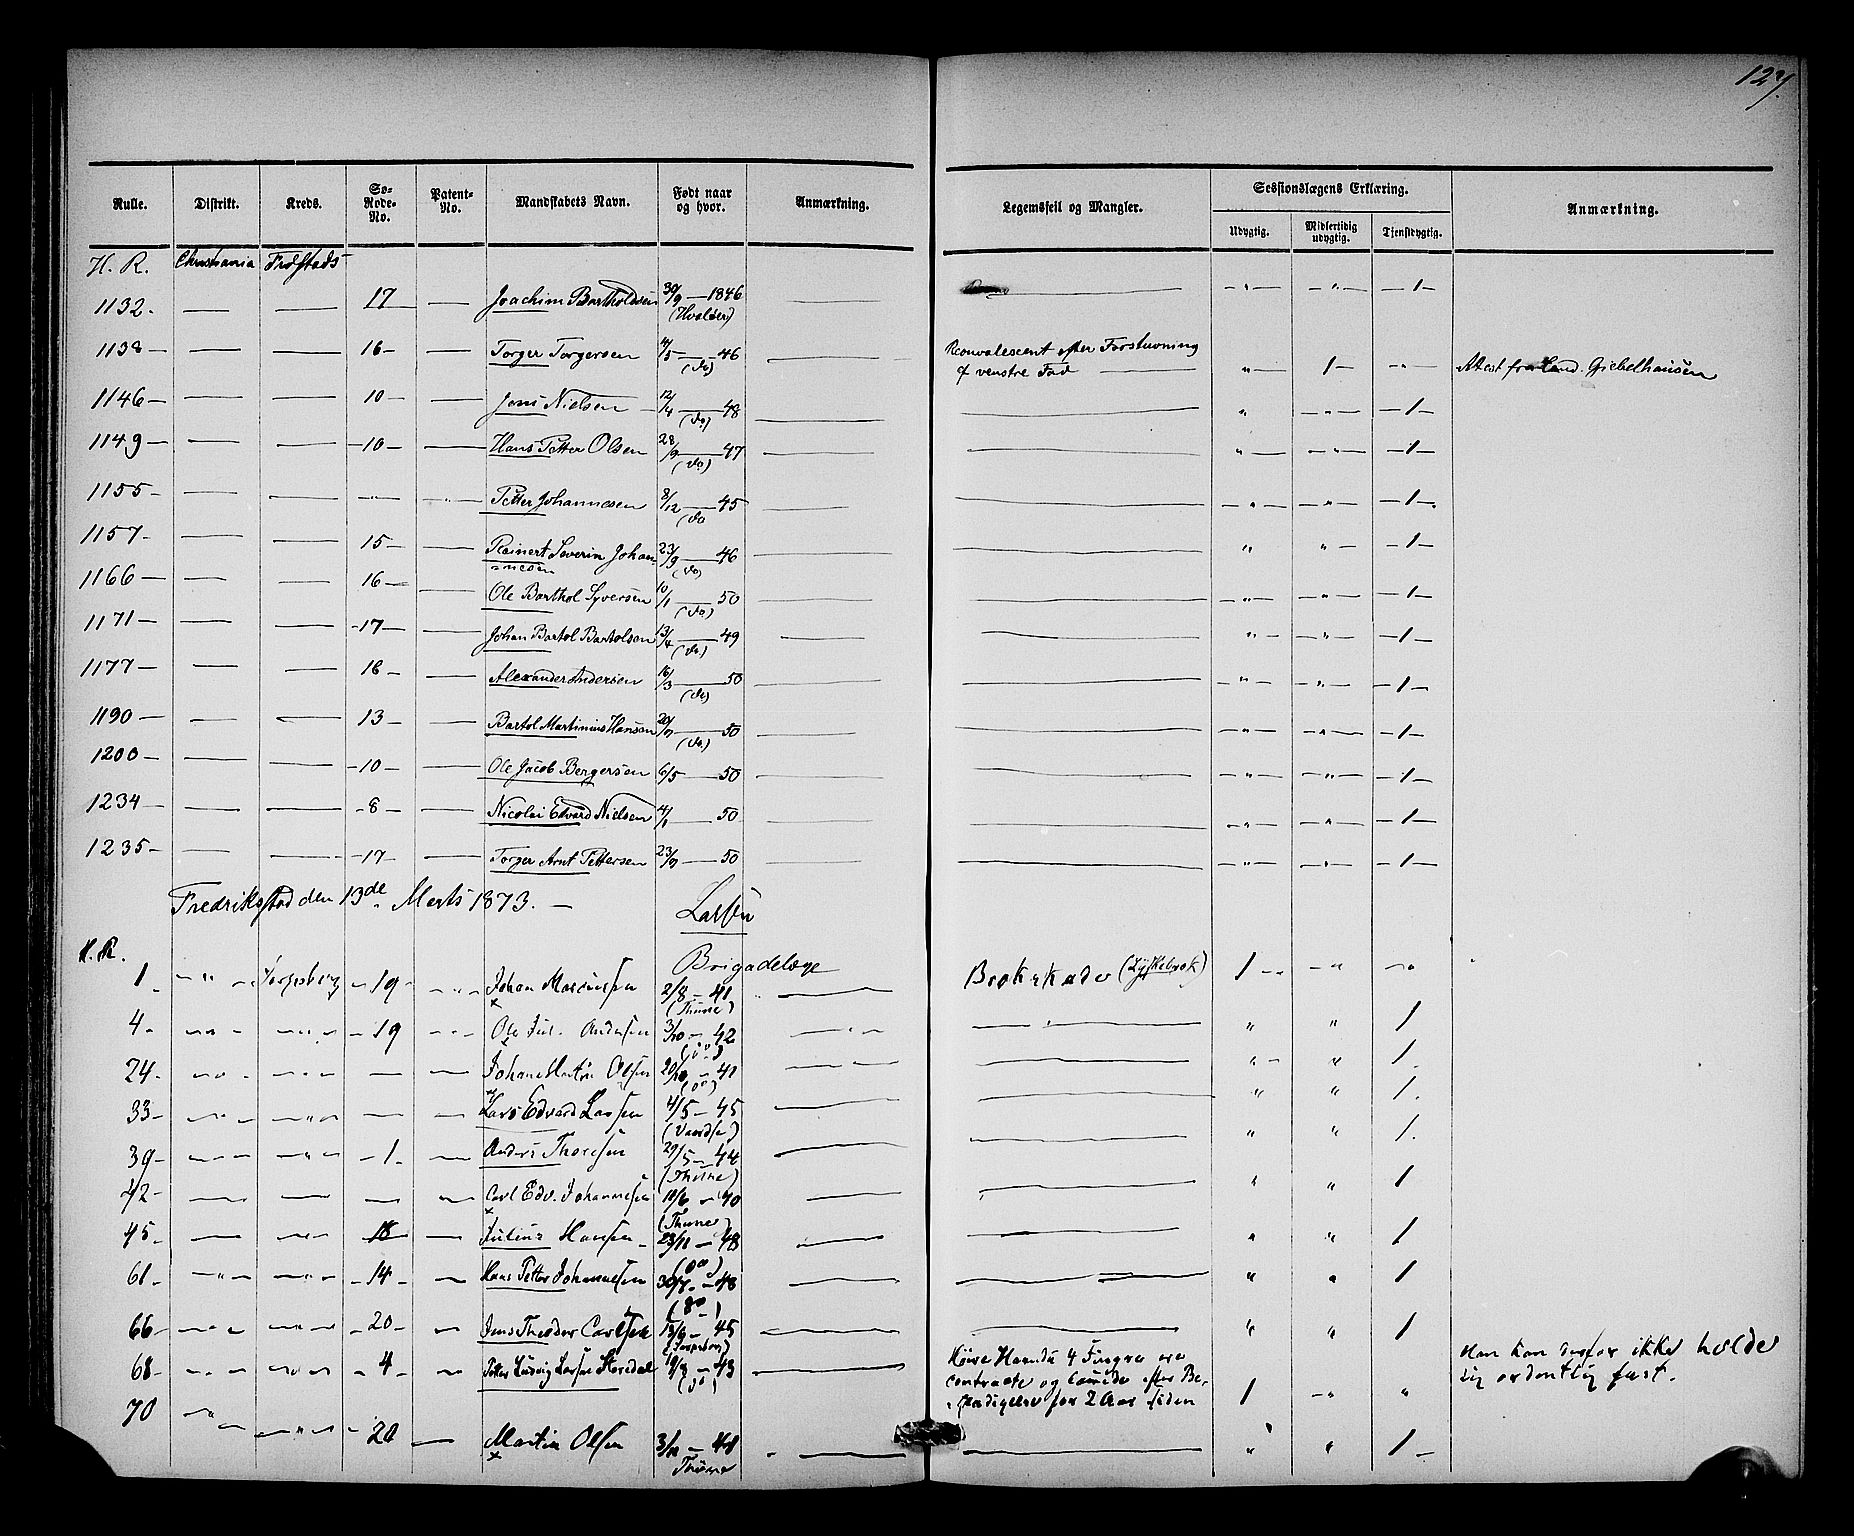 127.
Rulle. Distrikt. Kreds. Sø-Rode-No. Patent-No. Mandskabets Navn. Født naar og hvor. Anmærkning. Legemsfeil og Mangler. Sessionslægens Erklæring. Anmærkning.
Udygtig. Midlertidig udygtig. Tjenstdygtig.
H. R. Christiania Fredstads
1132. — — 17 — Joachim Bartholdsen 30/9 — 1846 (Hvaløer) — — — " — — 1 —
1138 — — — 16 — — Torger Torgersen 4/5 — 46 (do) Reconvalescent efter Forstuvning
af venstre Fod — " 1 — — " — Attest fra Cand. Giebelhausen
1146 — — — 10 — — Jens Nielsen — 12/4 — 48 (do) — — " — " — — 1 —
1149 — — — — 10 — — Hans Petter Olsen 28/9 — 47 (do) — — " — — " — — 1 —
1155 — — — — " — — " — Petter Johannesen 8/12 — 45 (do — — — " — — " — — 1 —
1157 — — — 15 — — Reinert Severin Johan-
nesen 23/9 — 46 (do) — — " " — — 1 —
1166 — — — 16 — — Ole Barthol Syversen 10/1 — 50 (do) — — — " — — " — — 1 —
1171 — — — — 17 — — Johan Bartol Bartolsen 13/4 — 49 (do) — — — " — — " — — 1 —
1177 — — — 16 — — Alexander Andersen 16/3 — 50 (do) — — — " — — " — — 1 —
1190 — — — 13 — — Bartol Martinius Hansen 20/7 — 50 (do) — — — " — — " — — 1 —
1200 — — — — 10 — — Ole Jacob Bergersen 6/5 — 50 — — — " — — " — — 1 —
1234 — — — — 8 — — Nicolai Edvard Nielsen 4/1 — 50 — — — " — — " — — 1 —
1235 — — — — 17 — — Torger Arnt Pettersen 23/7 — 50 — — — " — — " — — 1 —
Fredrikstad den 13de Marts 1873. — Larsen
Brigadelæge
H. R.
1. — " — Torpsberg — 19 — — " — Johan 2/8 — 41 (Thune) — Brokskade (Lyskebrok) 1 — — " — "
4 — — " — — " — — 19 — " — Ole Jul. Andersen 3/10 — 42 (do) — " — — " " 1
24 — — " — — " — — — Johan Martin Olsen 20/10 — 41 (do) — — " — " 1.
33 — — " — — " — — — Lars Edvard Larsen 4/5 — 45 (Varsdø) — — " " 1.
39 — — " — — " — — 1 — — Anders Thoresen 29/5 — 44 (Thune) — — " " 1.
42 — — — — — Carl Edv. Johannesen 10/6 — 40 (Thune) — — " " 1
45 — — — " — 18 — Julius Hansen — 23/11 — 48 (do) — — " " 1
61 — — " — — " — — 14 — — Hans Petter Johannesen 30/7 — 48 (do) — — " " 1
66 — — " — — " — — 20 — — Jens Theodor Carlsen 13/9 — 45 (Torpsberg) — — " " 1
68 — — " — — " — — 4 — — Petter Ludvig Larsen 19/8 — 43 (do) Høire Haands 4 Fingre ere
contracte og efter Be-
skadigelse for 2 Aar siden 1 — " " Han kan derfor ikke holde
sig ordentlig fast.
70 — " — — " — — 20 — Martin Olsen 3/12 — 48 Thune " — — " " 1 —